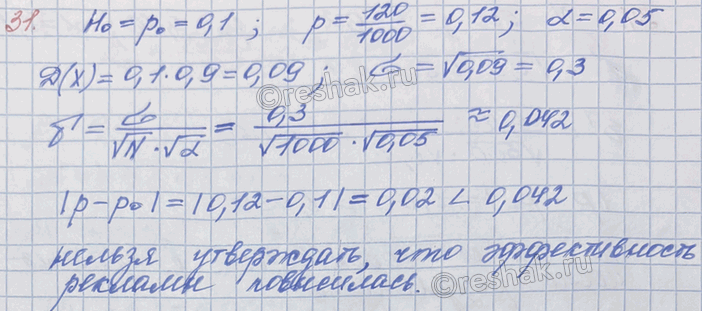 31. H₀ = p₀ = 0,1 ; p = 120/1000 = 0,12 ; α = 0,05
D(X) = 0,1·0,9 = 0,09 ; σ = √0,09 = 0,3
δ = σ/(√N·√α) = 0,3/(√1000·√0,05) ≈ 0,042
|p - p₀| = |0,12 - 0,1| = 0,02 < 0,042
нельзя утверждать, что эффективность
рекламы повысилась.
©reshak.ru